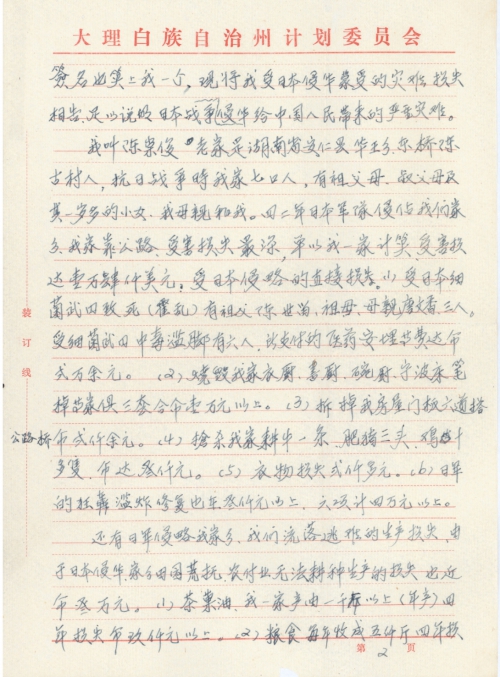 大理白族自治州计划委员会
签名也算上我一个，现将我受日本侵华蒙受的灾难损失
相告，足以说明日本战争侵华给中国人民带来的严重灾难。
我叫陈崇俊，老家是湖南省安仁县华王乡乐桥陈
古村人，抗日战争时我家七口人，有祖父母、叔父母及
其一岁多的小女、我母亲和我。四二年日本军队侵占我们家
乡，我家靠公路，受害损失最深，单以我一家计算，受害损
达壹万肆仟美元，受日本侵略的直接损失。(1)受日本细
菌武四致死（霍乱）有祖父陈世苗、祖母、母亲 三人。
受细菌武日中毒滥脚有六人，此支付的医药安埋苦费达币
弍万余元。(2)烧毁我家衣厨、书厨、碗厨、宁波床笔
掉苦家俱三套合币壹万元以上。(3)拆掉我房屋门板六道搭
公路桥币弍仟余元。(4)抢杀我家耕牛一条、肥猪三头、鸡 十
多隻，币达叁仟元。(5)衣物损失弍仟多元。(6)日军
的狂轰滥炸修复也在叁仟元以上，六项计四万元以上。
还有日军侵略我家乡，我们流落逃难的生产损失，由
于日本侵华家乡田园荒抚，农付业无法耕种生产的损失也近
币叁万元。(1)茶菓油，我一家产由一千斤以上（年产）四
年损失币玖仟元以上。(2)粮食每年收成五仟斤四年损
装订线
第2页